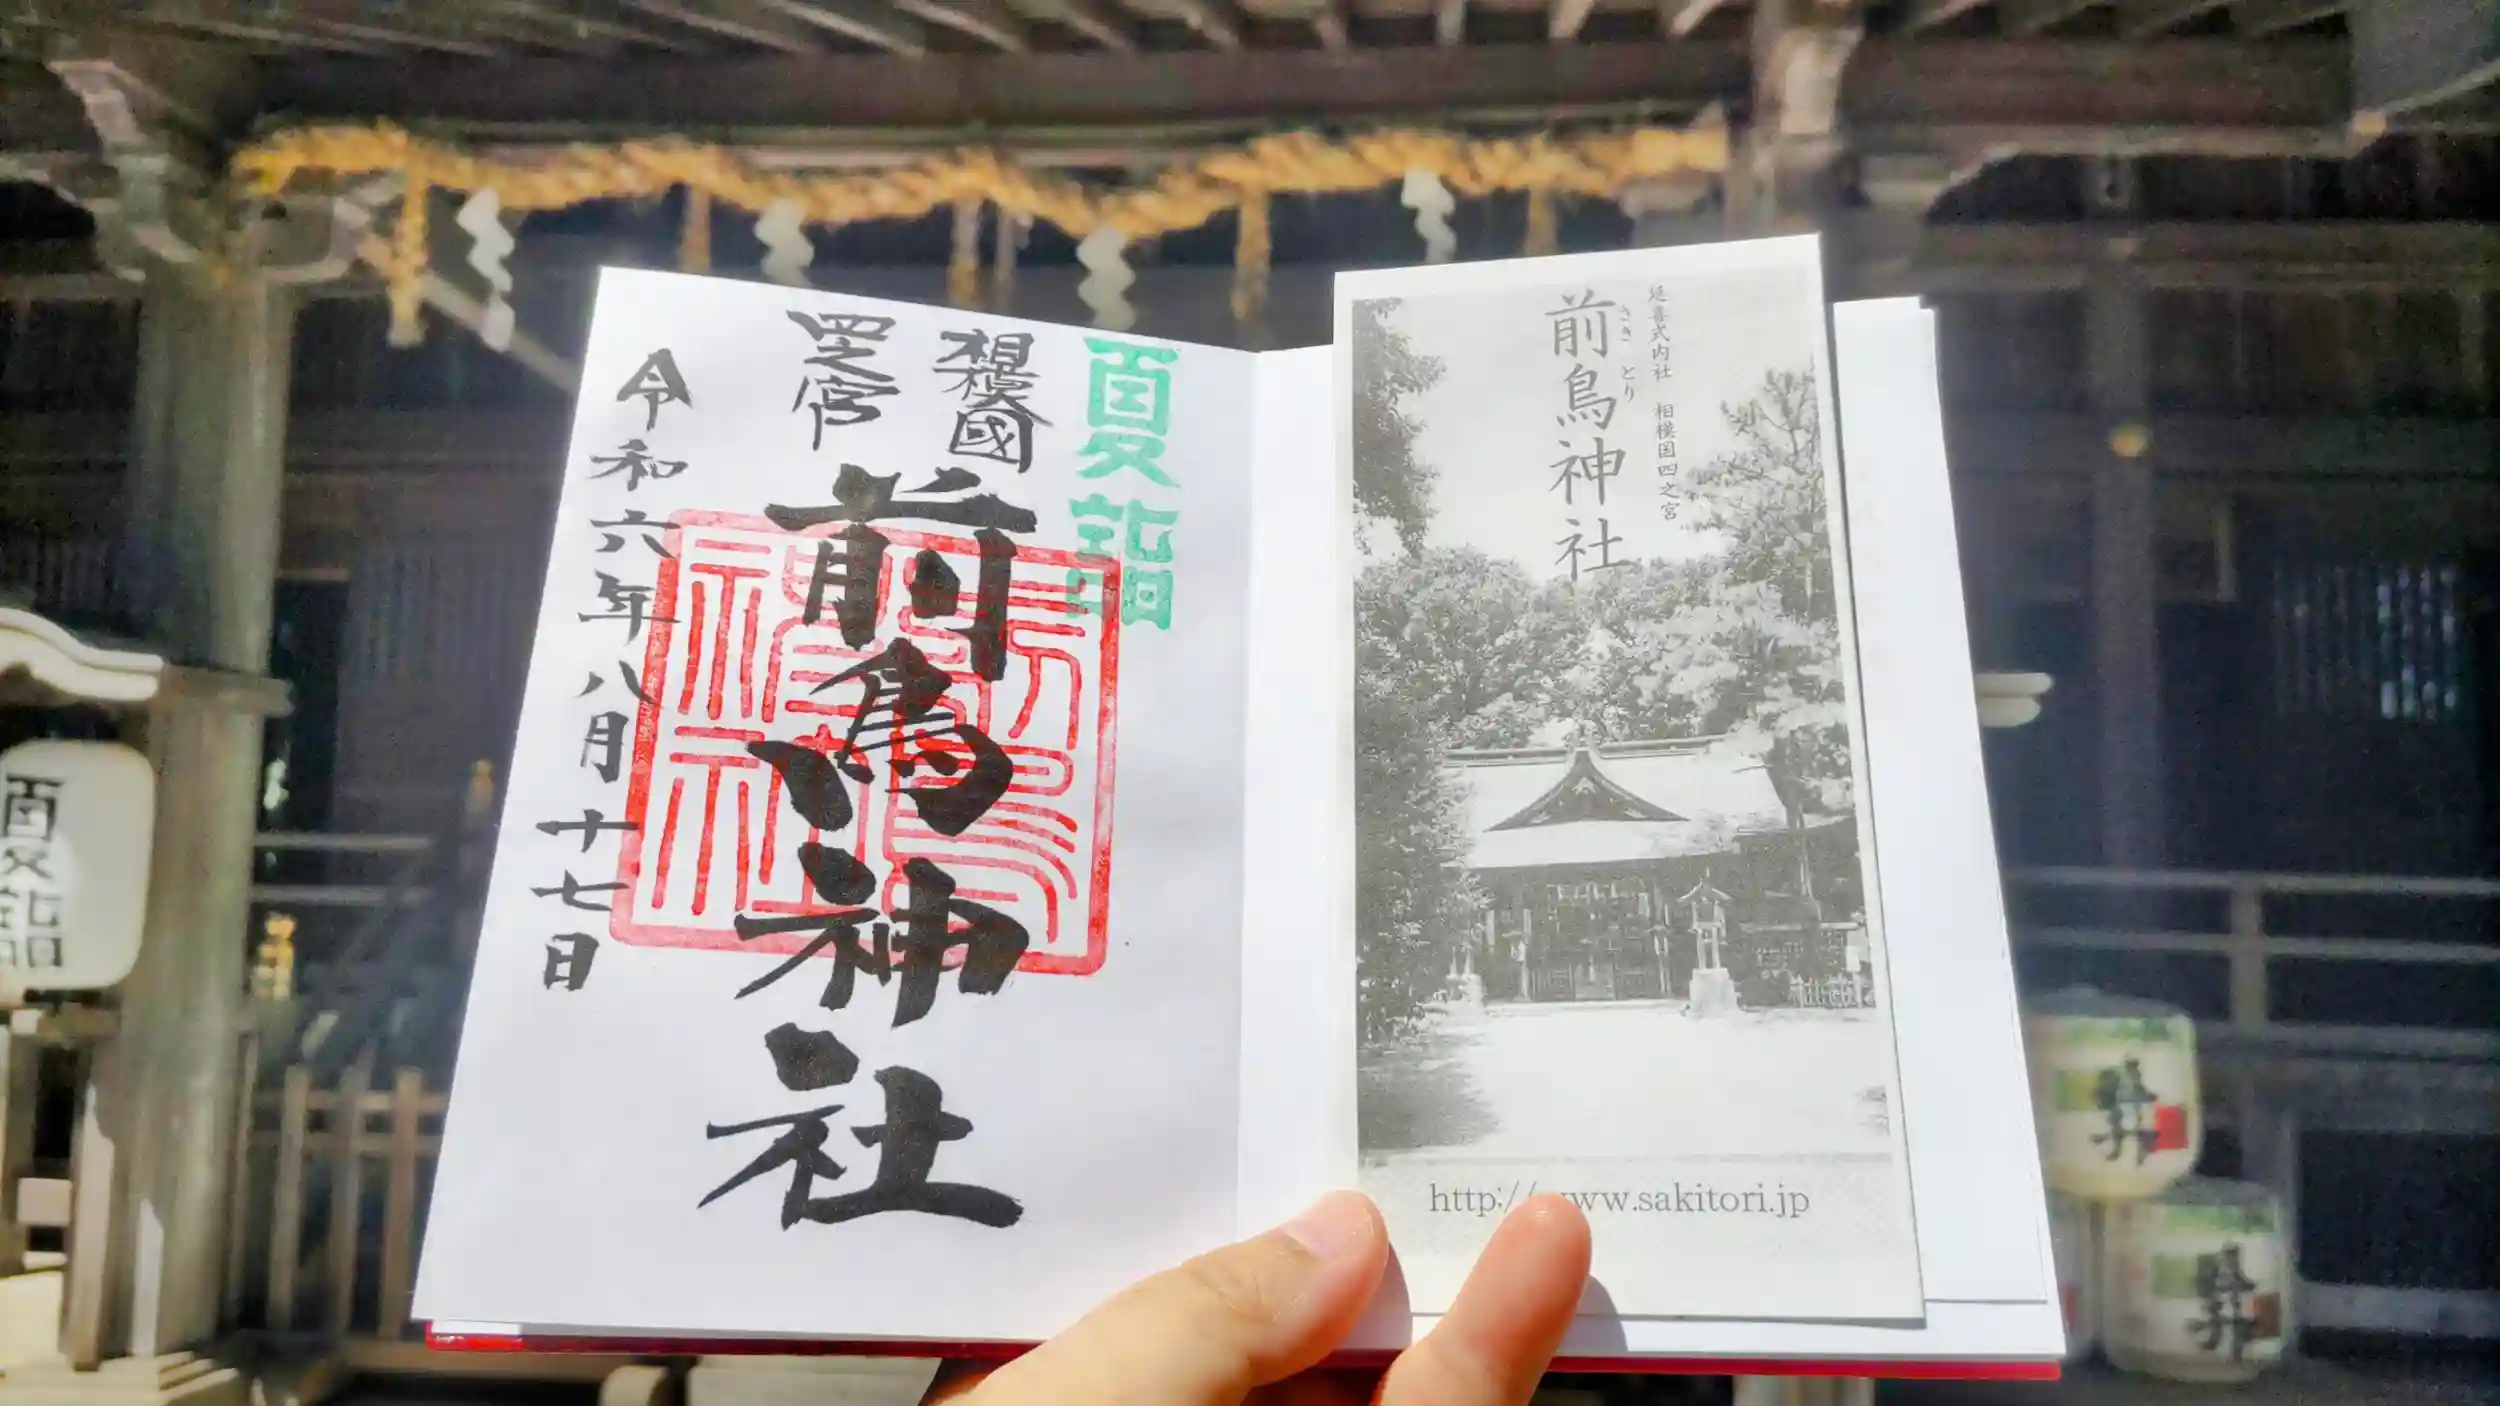 夏詣
相模國
四之宮
前鳥神社
令和六年八月十七日
前鳥神社
延喜式内社 相模国四之宮
さきとり
前鳥神社
http://www.sakitori.jp
夏詣